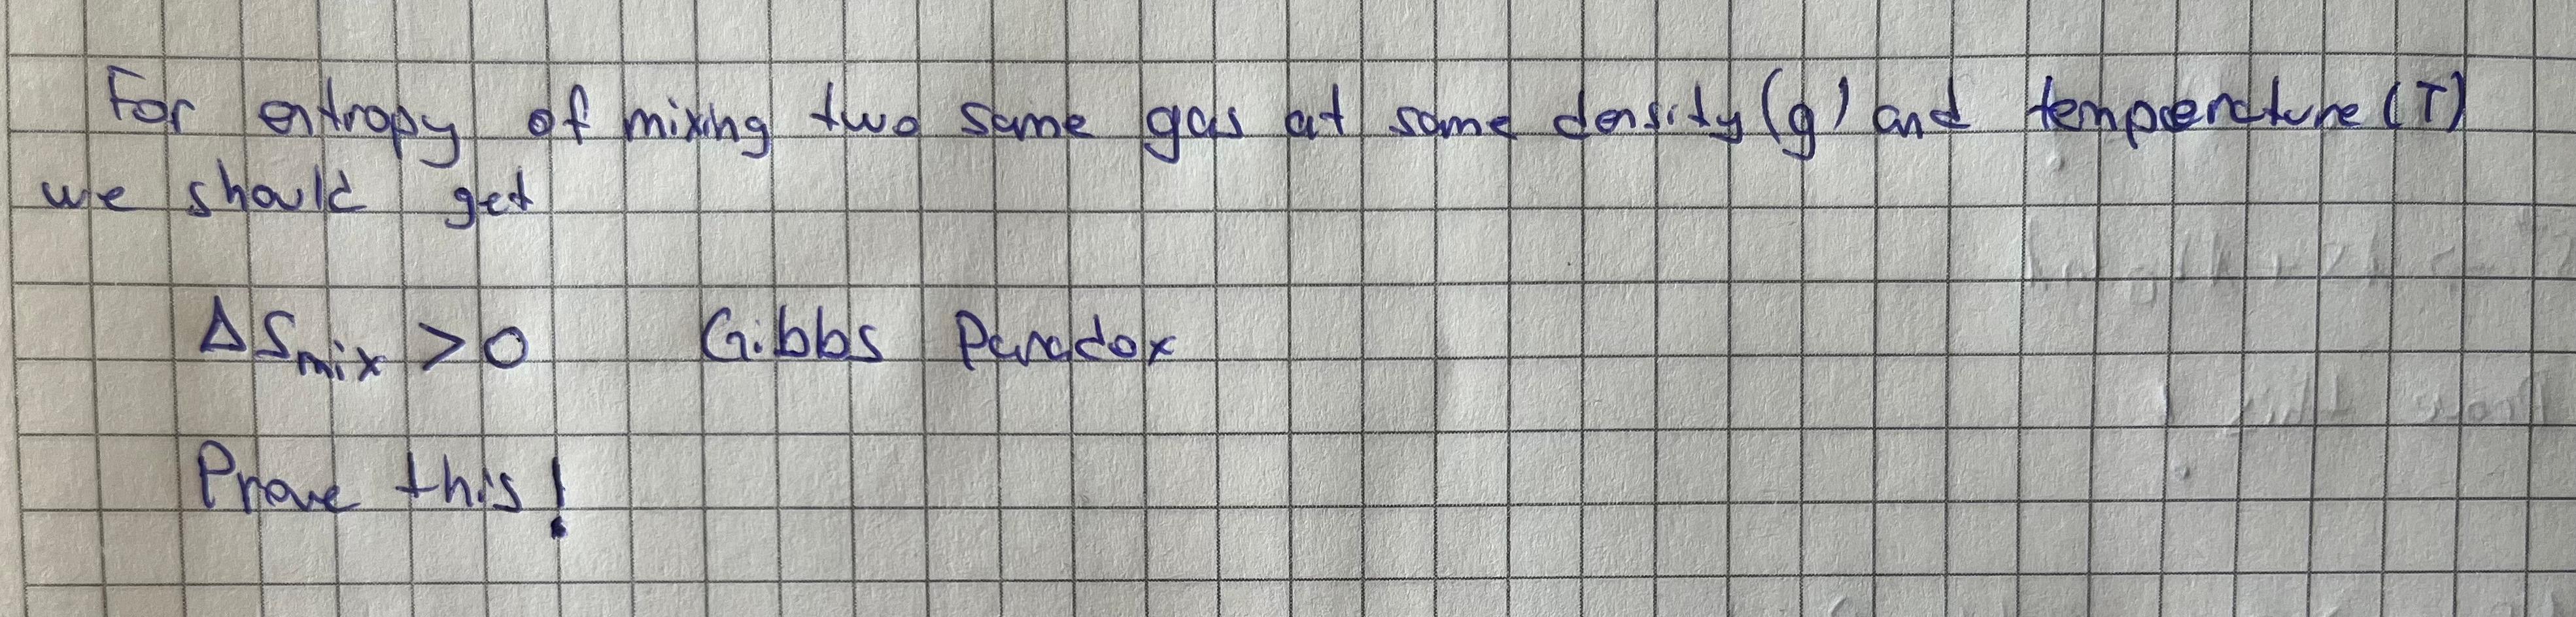 For entropy of mixing two same gas at same density (ρ) and temperature (T)
we should get
ΔS_mix > 0 Gibbs Paradox
Prove this!